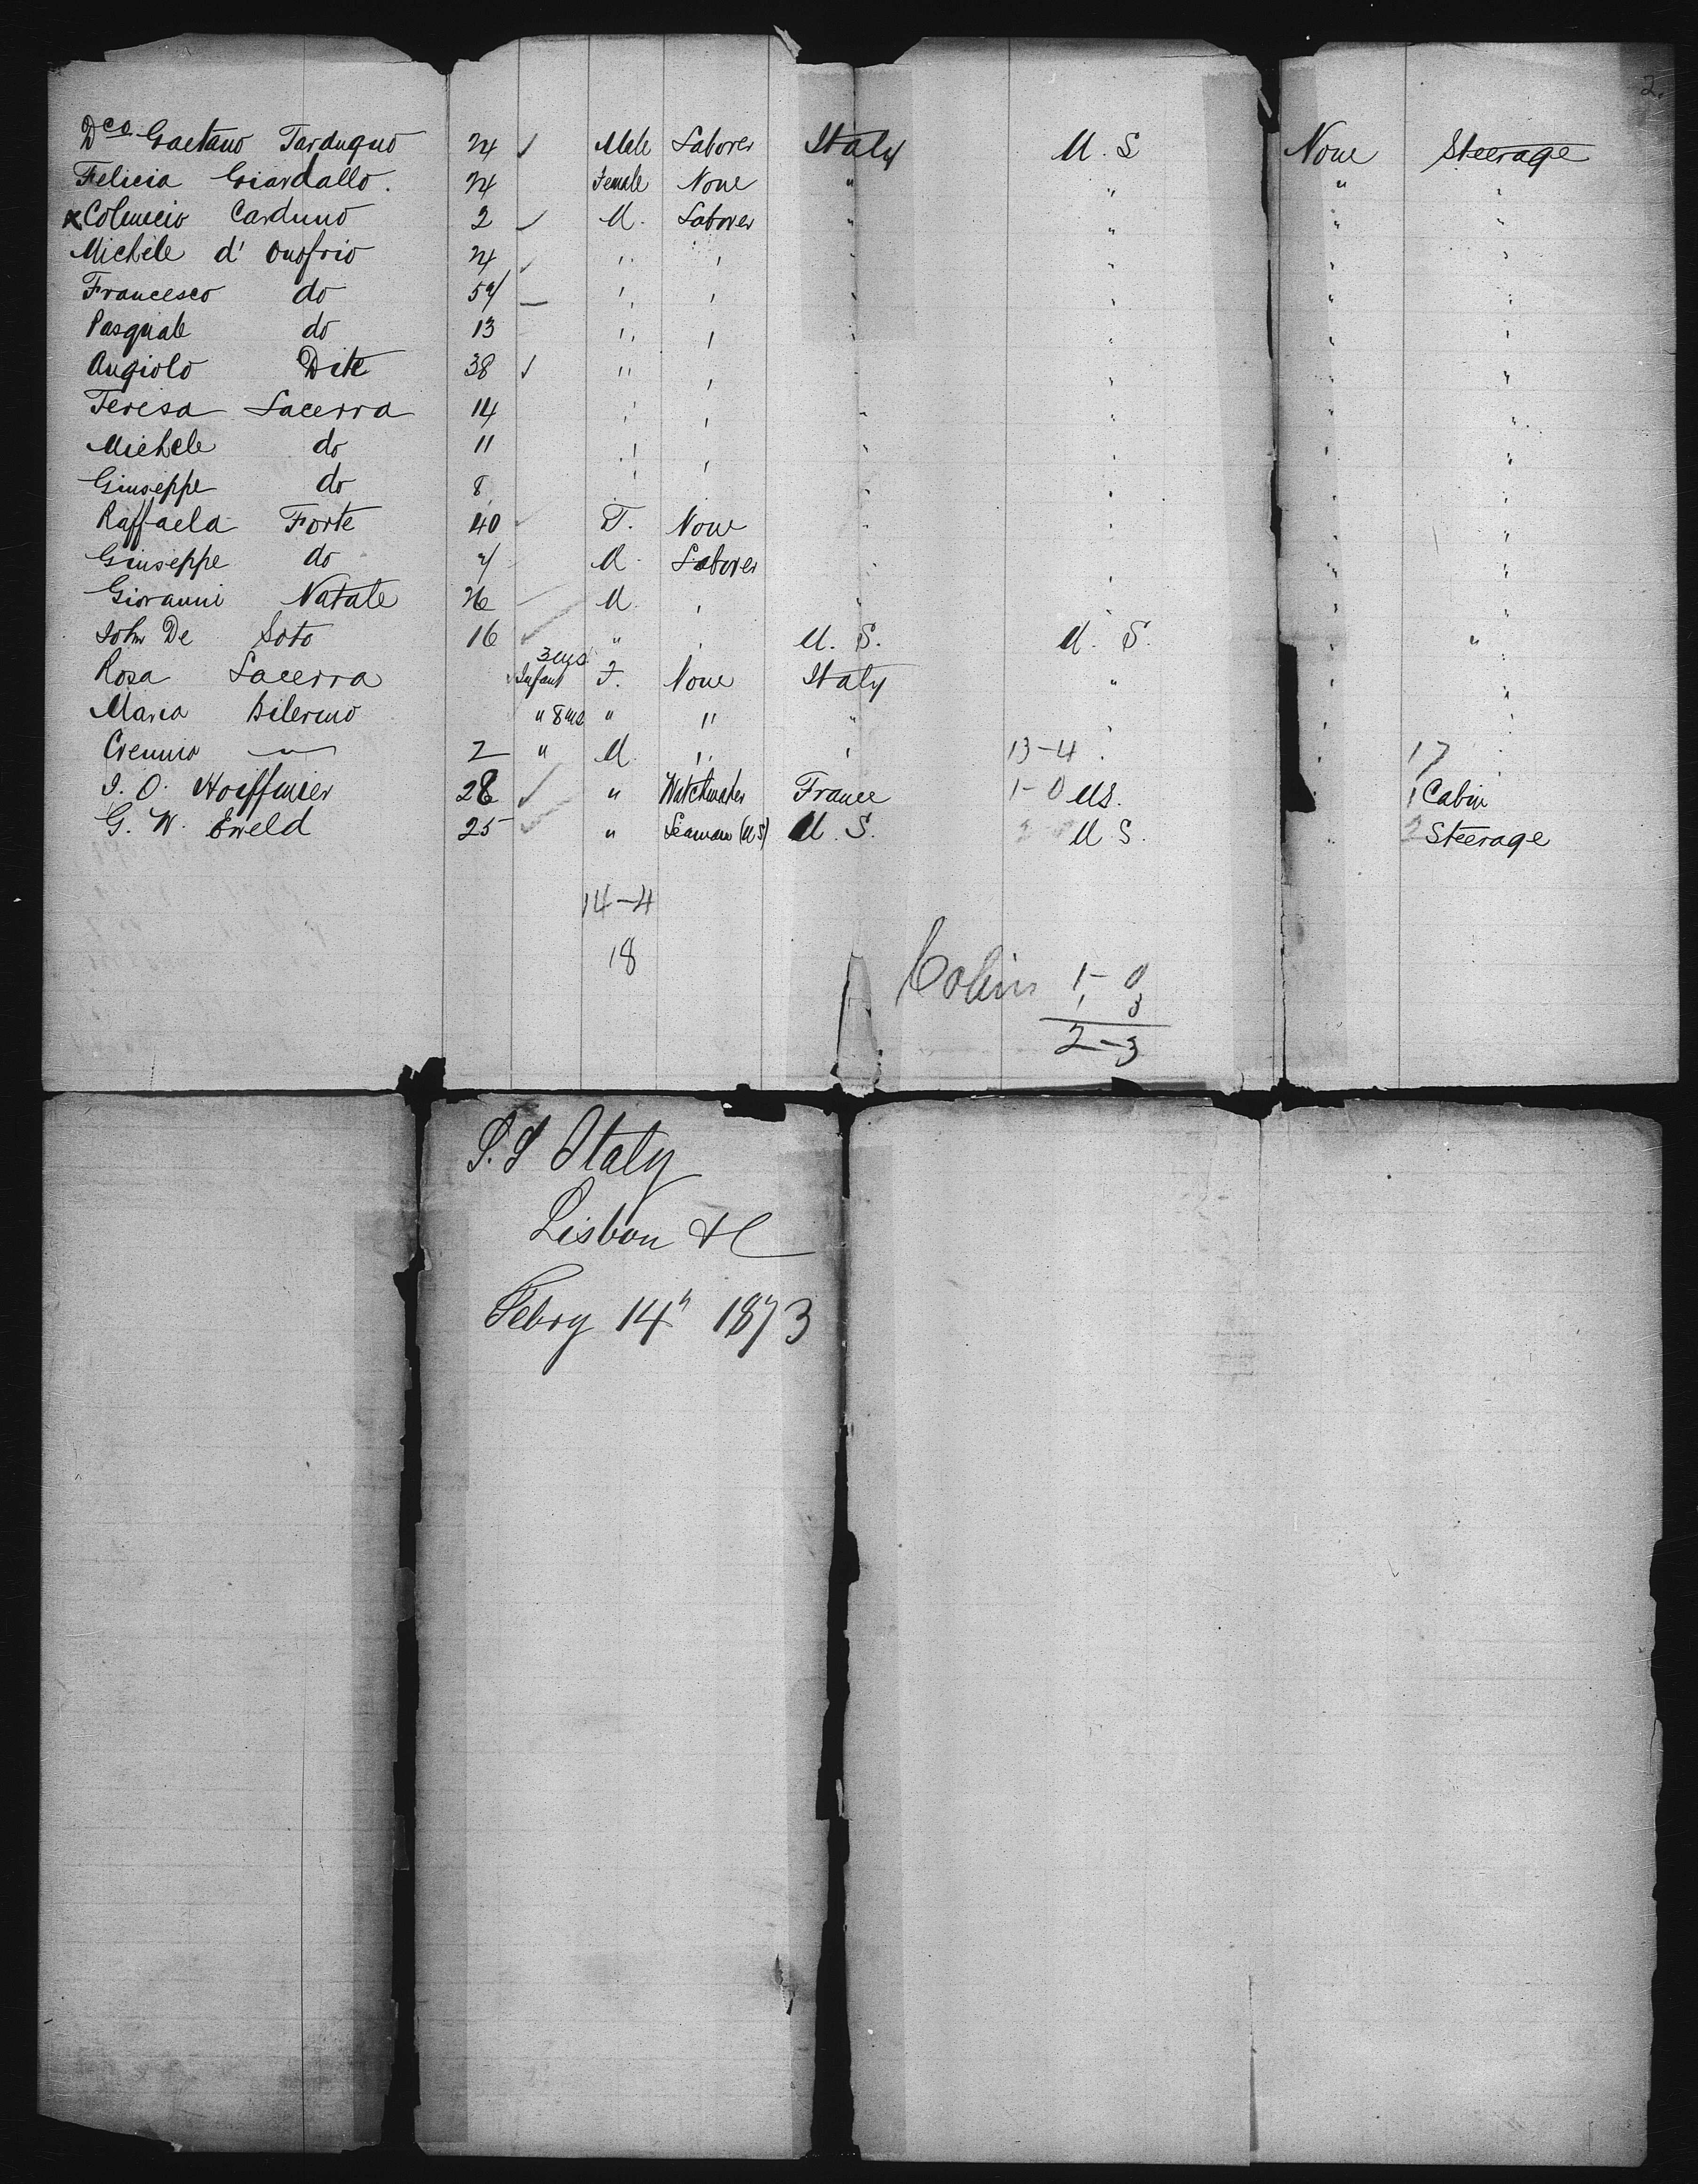 2.
Dco. Gaetano Tarduguo 24 ✓ Male Laborer Italy U. S None Steerage
Felicia Giardallo. 24 Female None " " " "
x Colmecio Carduno 2 ✓ M. Laborer " " " "
Michele d' Onofrio 24 ✓ " " " " " "
Francesco do 54 — " " " " " "
Pasquale do 13 " " " " " "
Angiolo Dite 38 ✓ " " " " " "
Teresa Lacerra 14 " " " " " "
Michele do 11 " " " " " "
Giuseppe do 8 " " " " " "
Raffaela Forte 40 F. None " " " "
Giuseppe do 4 M. Laborer " " " "
Giovanni Natale 26 M. " " " " "
John De Soto 16 ✓ " " U. S. U. S. " "
Rosa Lacerra Infant 3 ms F. None Italy " " "
Maria Bilermo " 8 ms " " " " " "
Crenmo — 2 " M. " " 13-4 " 17 "
J. O. Hoiffmier 28 ✓ " Watchmaker France 1-0 US. " 1 Cabin
G. W. Eweld 25 " Seaman (US) U. S. 2 U S. " 2 Steerage
14-4
18
Cabin 1-0
1 3
2-3
S. S Italy
Lisbon &c
Febry 14" 1873